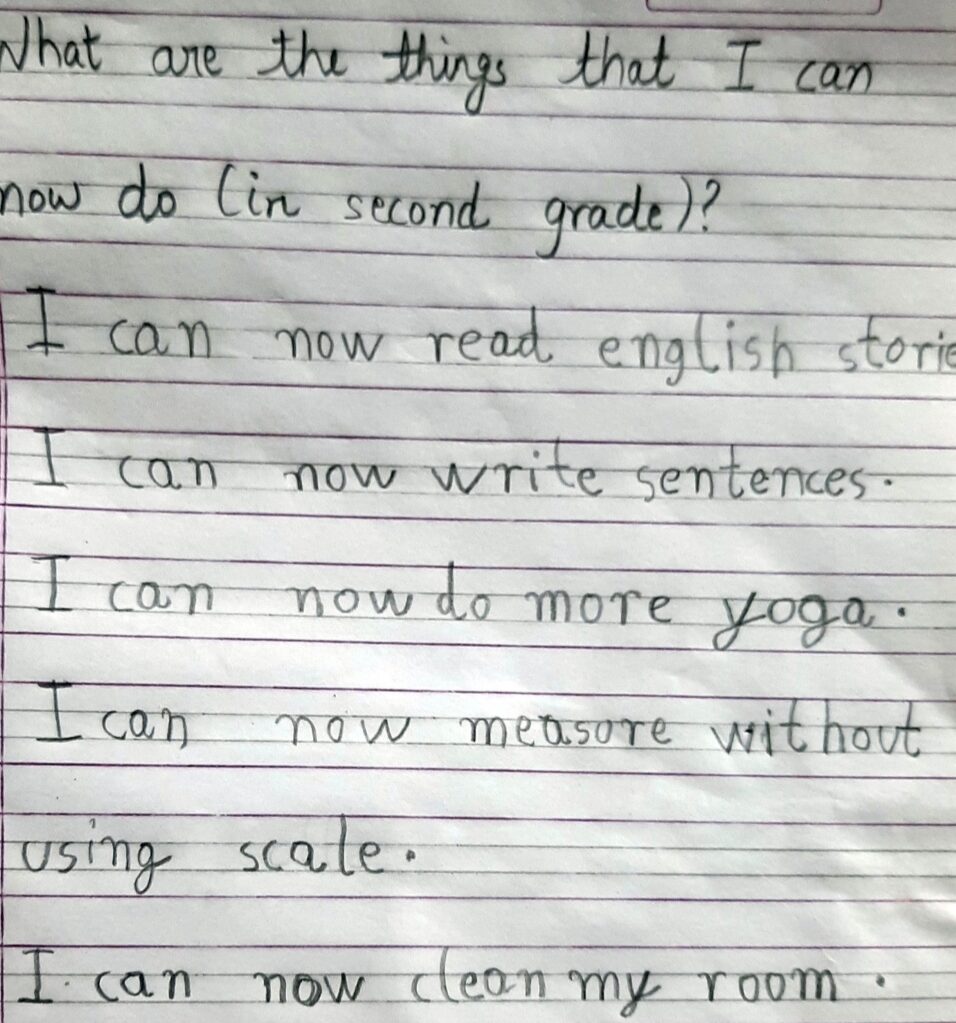 What are the things that I can
now do (in second grade)?
I can now read english storie
I can now write sentences.
I can now do more yoga.
I can now measure without
using scale.
I can now clean my room.